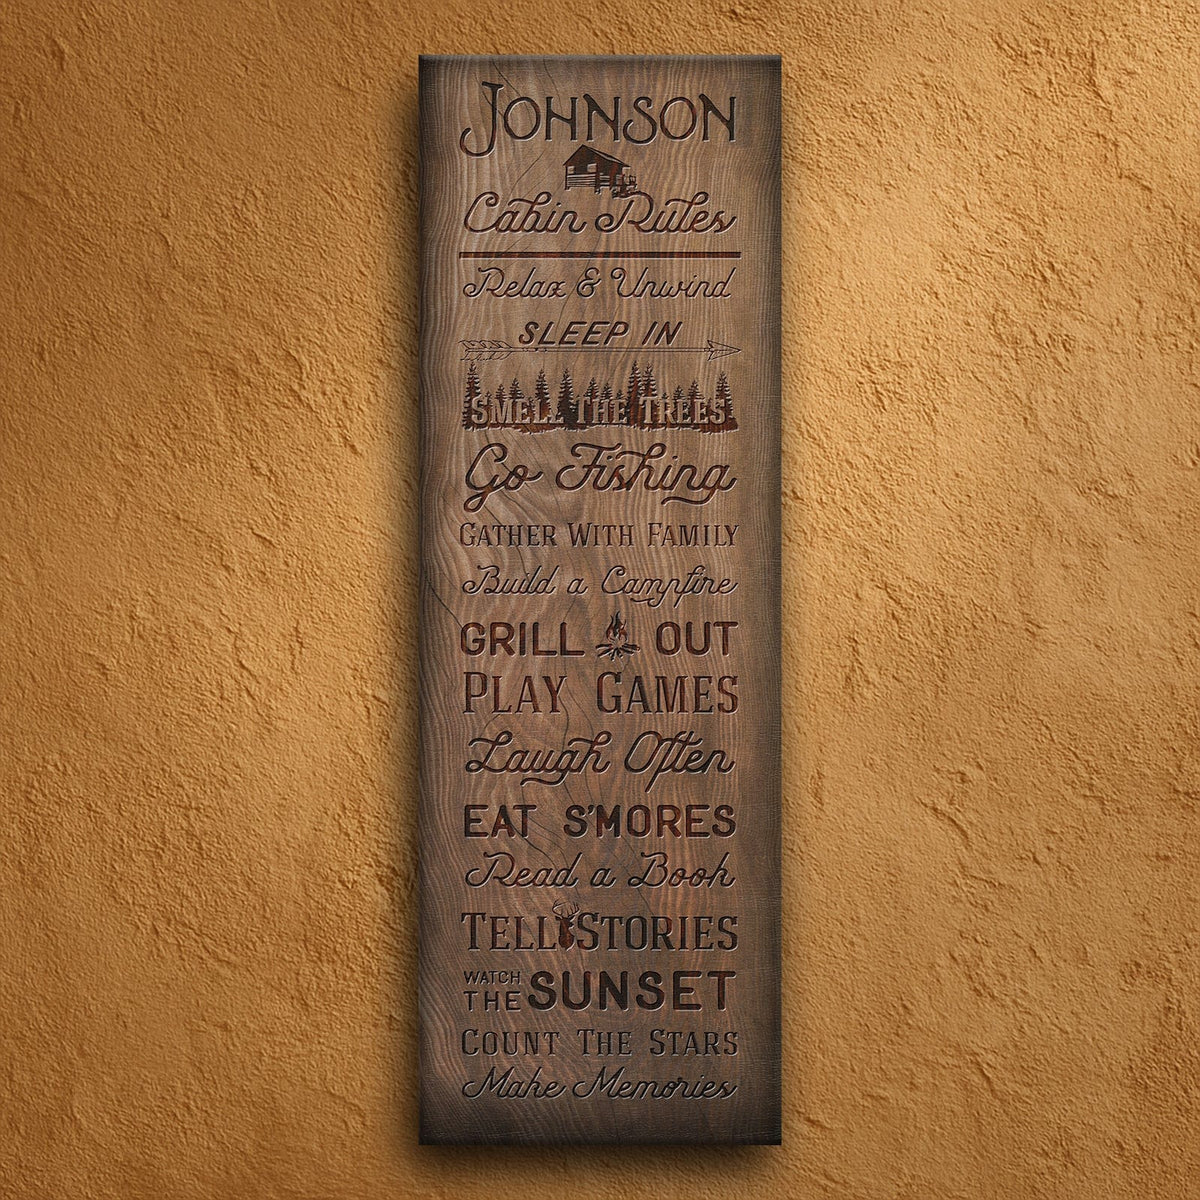 JOHNSON
Cabin Rules
Relax & Unwind
SLEEP IN
SMELL THE TREES
Go Fishing
GATHER WITH FAMILY
Build a Campfire
GRILL OUT
PLAY GAMES
Laugh Often
EAT S'MORES
Read a Book
TELL STORIES
WATCH THE SUNSET
COUNT THE STARS
Make Memories